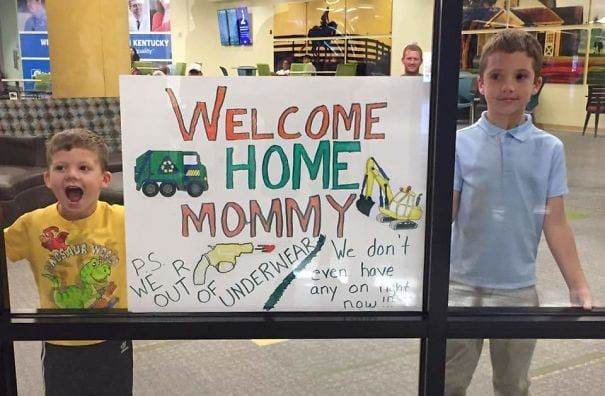 KENTUCKY
WELCOME
HOME
MOMMY
P.S.
WE R
OUT OF UNDERWEAR
We don't
even have
any on right
now !!!